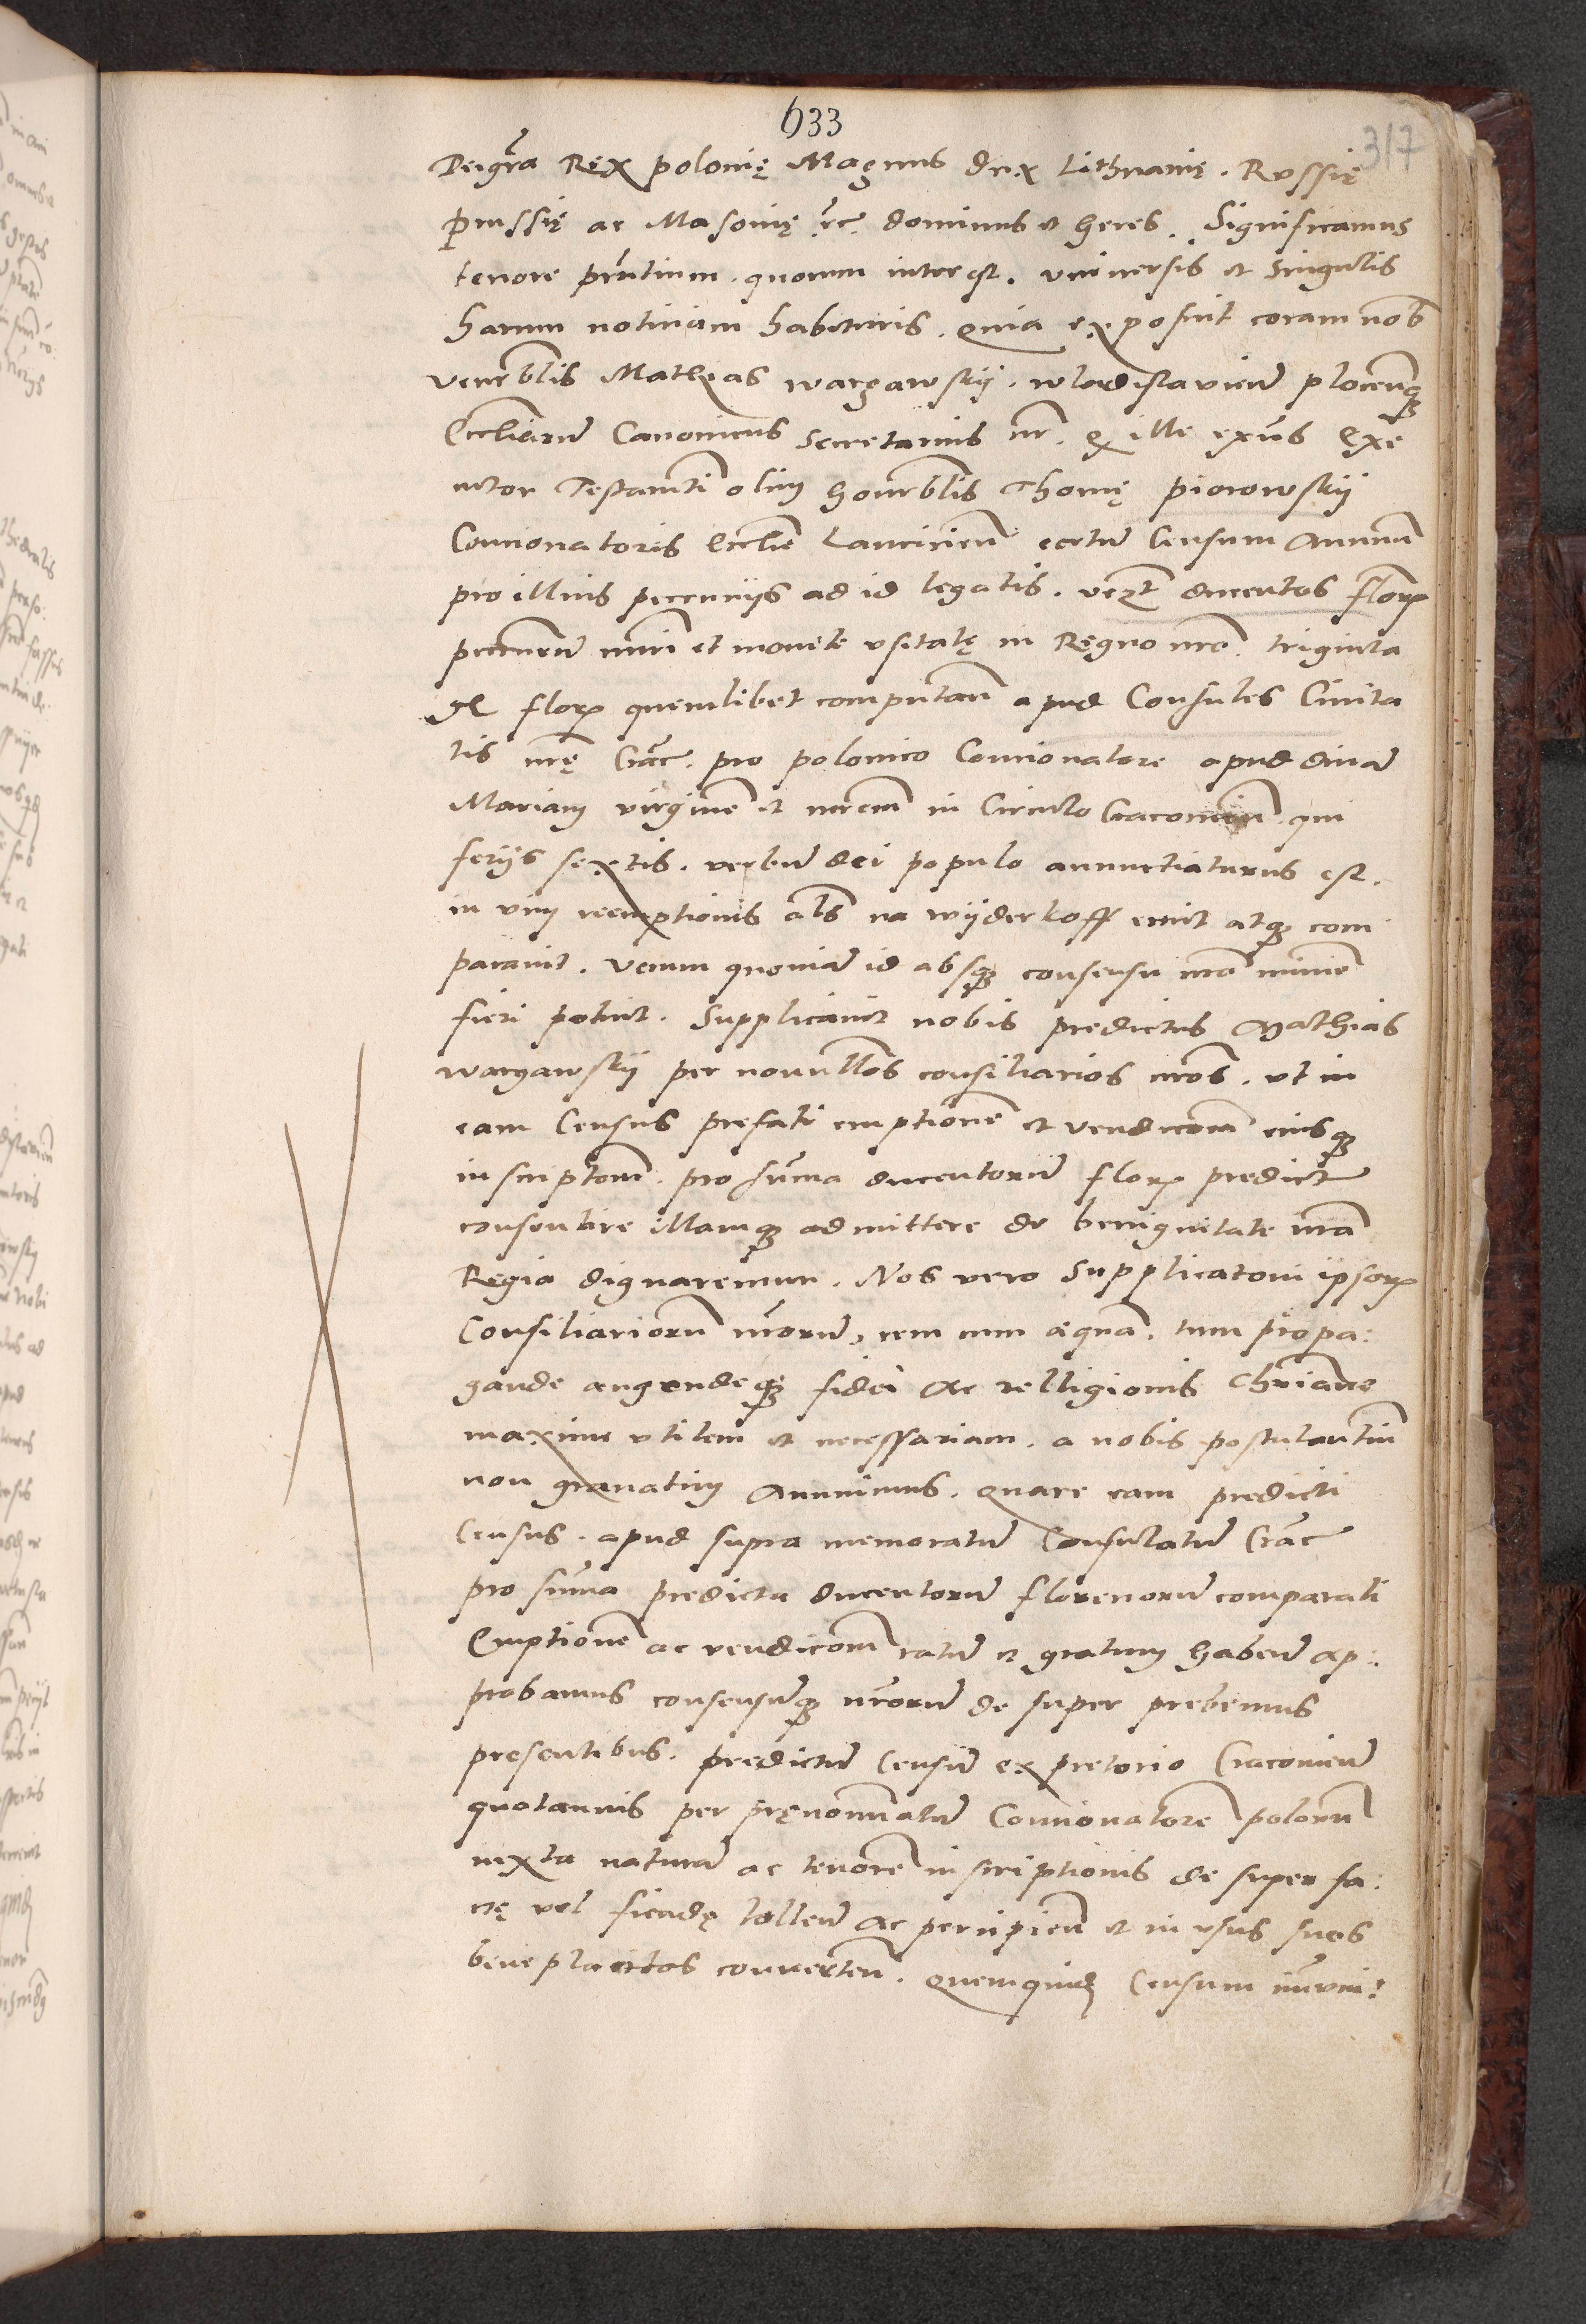 633
317
Dei gr̃a Rex Polonię Magnus dux Lithuanię . Russię
Prussię ac Masouię &c̃ . dominus et heres . Significamus
tenore pñtium . quorum interest . vniuersis et singulis
harum notitiam habituris . Quia exposuit coram nob̃
venerb̃lis Mathias wargawskij . wladislauień plocenq̃
Eccl̃iarũ Canonicus Secretarius nr̃ . q̃ ille exñs Exe
cutor Testam̃ti olim honorb̃lis Thomę piotrowskij
Concionatoris Eccl̃ie Lancicień certũ Censum Annuũ
pro illius pecunijs ad id legatis . vezt ducentos florꝝ
pecuniarũ nũri et monete vsitatę in Regno nr̃o . triginta
gr̃ florꝝ quemlibet computań apud Consules Ciuita
tis nr̃ę Crac̃ . pro polonico Concionatore apud diuã
Mariam virginẽ et mr̃em in Circulo Cracouień . qui
ferijs sextis . verbũ dei populo annuntiaturus est .
in vim reemptionis al̃s na wijderkoff emit atq̃ com
parauit . Verum quoniã id absq̃ consensu nr̃o minime
fieri potuit . Supplicauit nobis predictus Mathias
wargawskij per nonnullos consiliarios nr̃os . vt in
eam Census prefati emptionẽ et vendicõnẽ eiusq̃
inscriptõnẽ . pro sum̃a ducentorũ florꝝ predict̃
consentire illamq̃ admittere de benignitate nr̃a
Regia dignaremur . Nos vero Supplicatõni ipsorꝝ
Consiliariorũ nr̃orũ , rem cum æquã . tum propa:
gande augendeq̃ fidei ac relligionis Chr̃iane
maxime vtilem et necessariam . a nobis postulantiũ
non grauatim Annuimus . quare eam predicti
Census . apud supra memoratũ Consulatũ Crac̃
pro sum̃a predicta ducentorũ florenorũ comparati
Emptionẽ ac vendicõnẽ ratũ et gratum habeñ ap:
probamus consensumq̃ nr̃orũ de super prebemus
presentibus . predictũ Censũ ex pretorio Cracouień
quotannis per pręnominatũ Concionatorẽ polonũ
iuxta naturã ac tenorẽ inscriptionis de super fa:
ctę vel fiendę tolleñ ac percipień et in vsus suos
beneplacitos conuerteñ . Quemquid̃ Censum im̃uni: